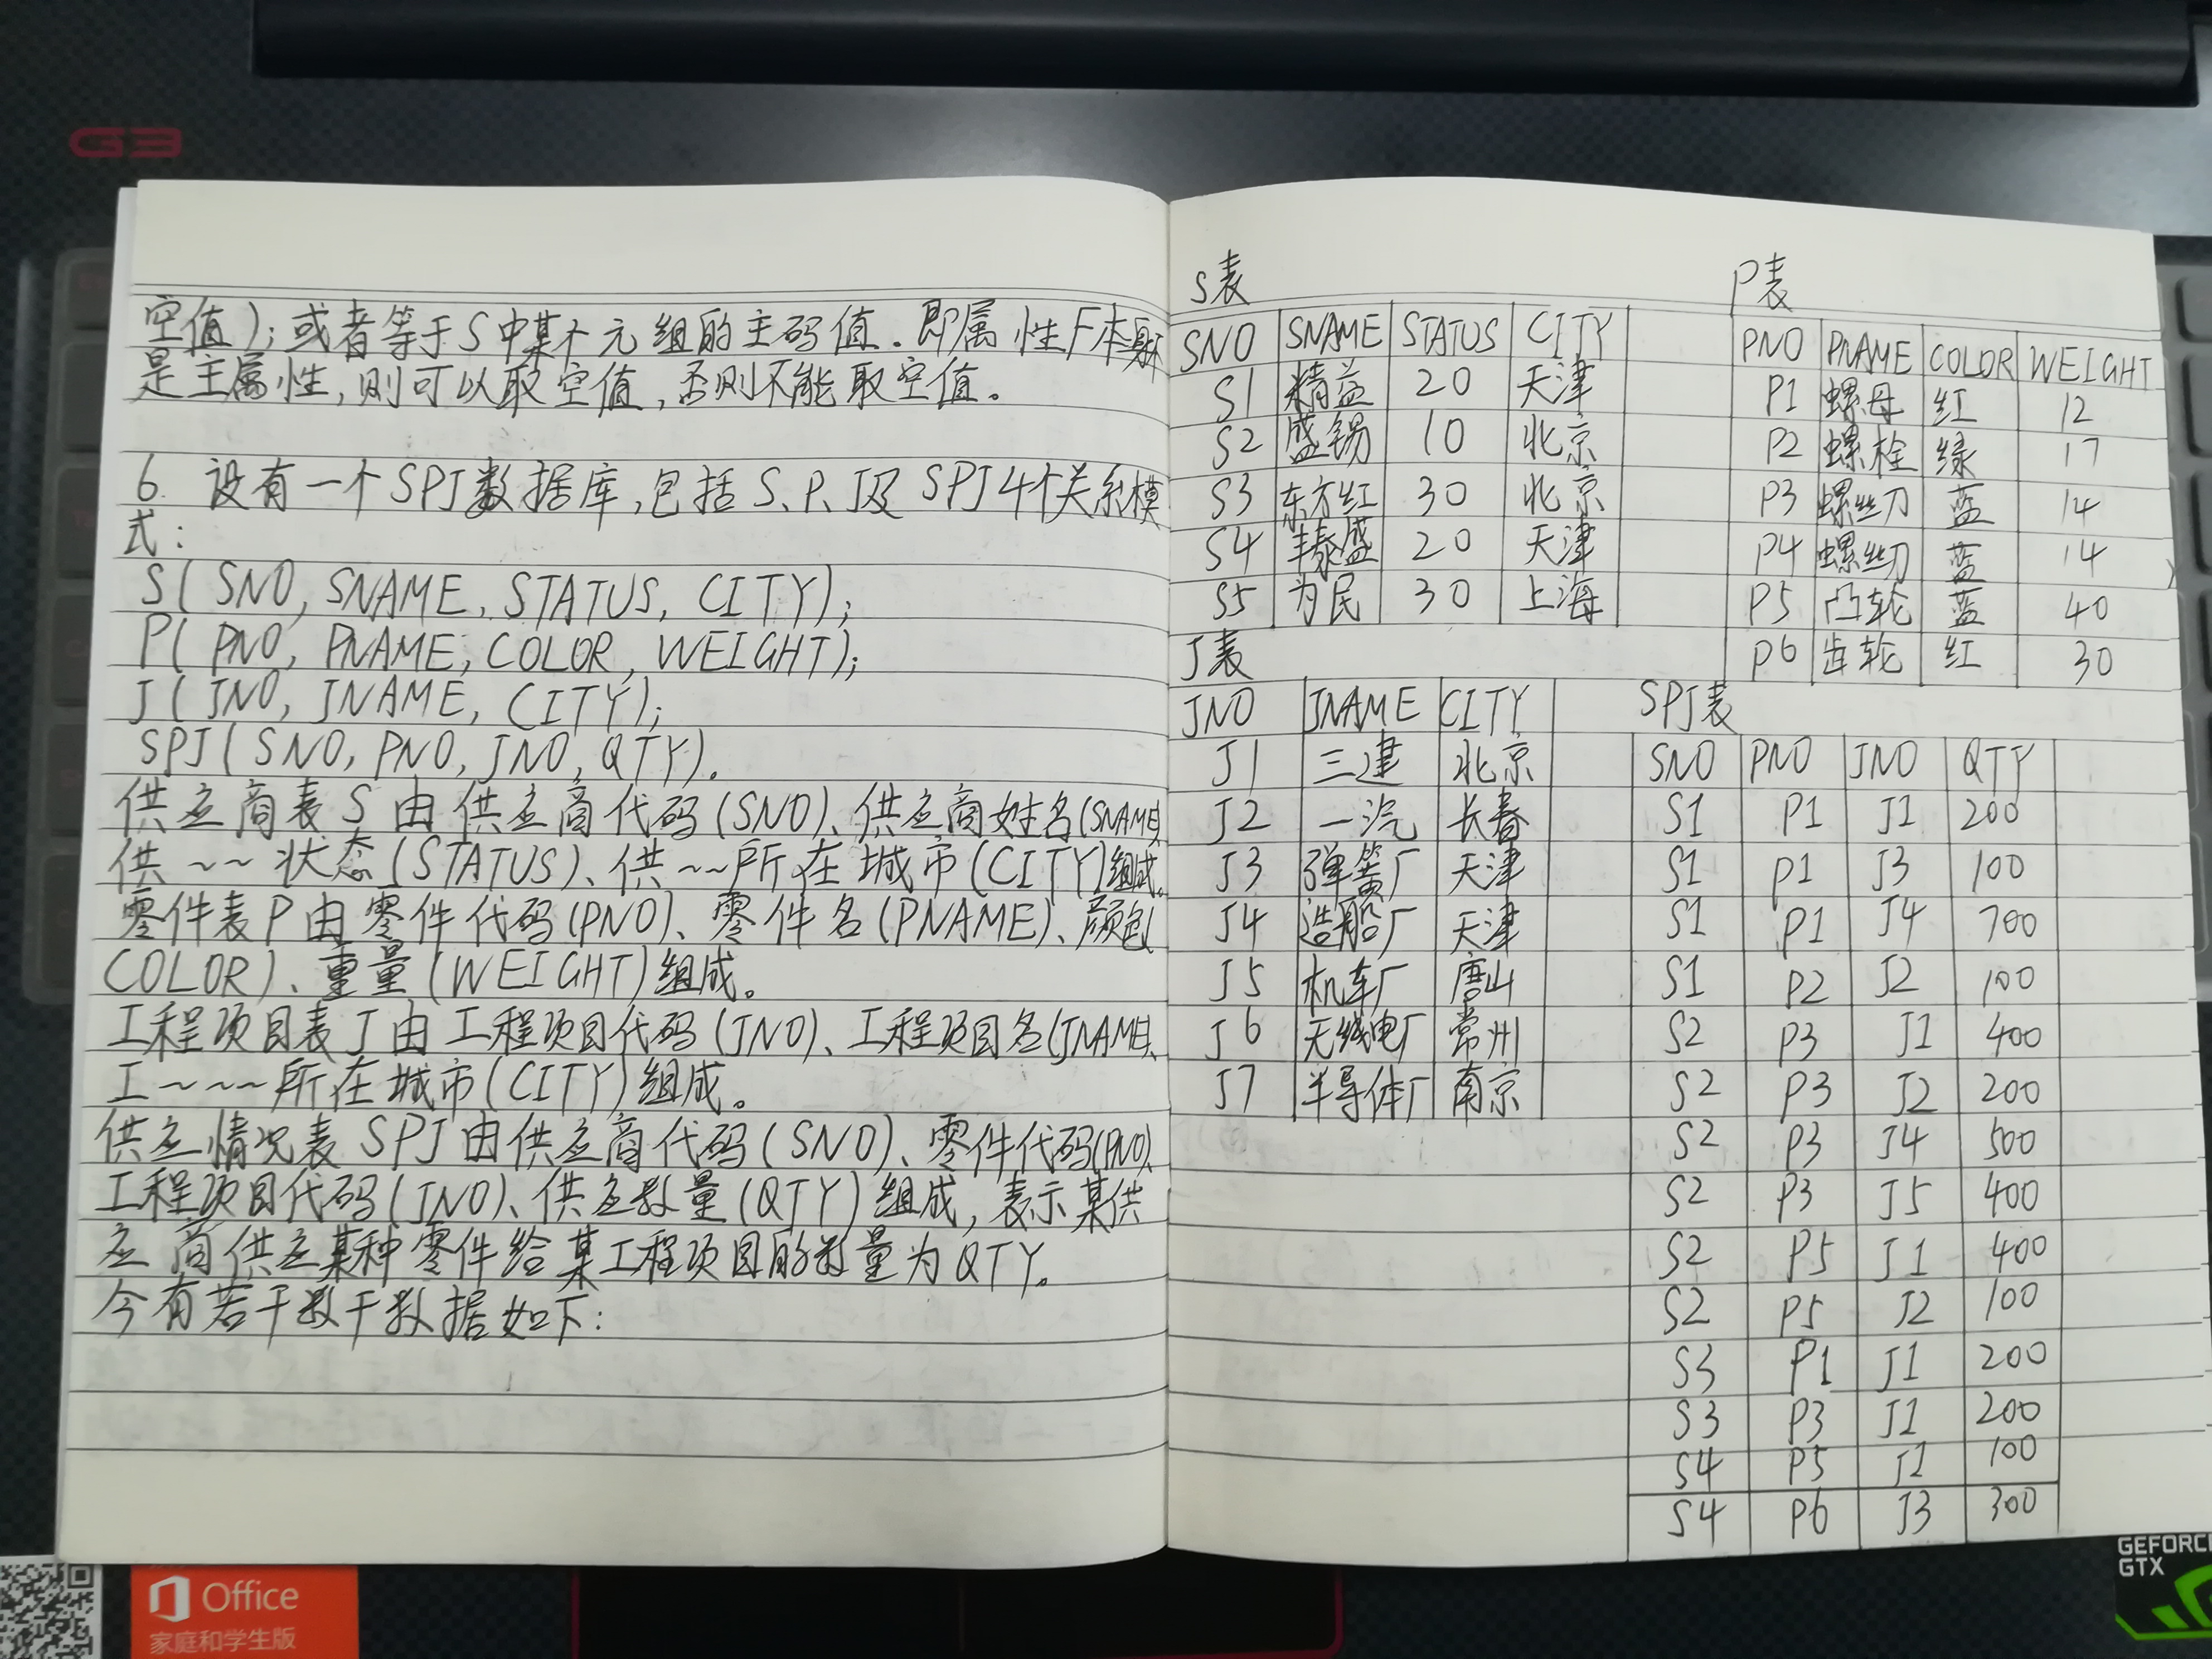 G3
空值);或者等于S中某个元组的主码值.即属性F本身不
是主属性,则可以取空值,否则不能取空值。
6. 设有一个SPJ数据库,包括S、P、J及SPJ4个关系模
式:
S(SNO,SNAME,STATUS,CITY);
P(PNO,PNAME,COLOR,WEIGHT);
J(JNO,JNAME,CITY);
SPJ(SNO,PNO,JNO,QTY).
供应商表S由供应商代码(SNO)、供应商姓名(SNAME)
供~~状态(STATUS)、供~~所在城市(CITY)组成。
零件表P由零件代码(PNO)、零件名(PNAME)、颜色
COLOR)、重量(WEIGHT)组成。
工程项目表J由工程项目代码(JNO)、工程项目名(JNAME)、
工~~~所在城市(CITY)组成。
供应情况表SPJ由供应商代码(SNO)、零件代码(PNO)、
工程项目代码(JNO)、供应数量(QTY)组成,表示某供
应商供应某种零件给某工程项目的数量为QTY。
今有若干数干数据如下:
S表
SNO SNAME STATUS CITY
S1 精益 20 天津
S2 盛锡 10 北京
S3 东方红 30 北京
S4 丰泰盛 20 天津
S5 为民 30 上海
P表
PNO PNAME COLOR WEIGHT
P1 螺母 红 12
P2 螺栓 绿 17
P3 螺丝刀 蓝 14
P4 螺丝刀 蓝 14
P5 凸轮 蓝 40
P6 齿轮 红 30
J表
JNO JNAME CITY
J1 三建 北京
J2 一汽 长春
J3 弹簧厂 天津
J4 造船厂 天津
J5 机车厂 唐山
J6 无线电厂 常州
J7 半导体厂 南京
SPJ表
SNO PNO JNO QTY
S1 P1 J1 200
S1 P1 J3 100
S1 P1 J4 700
S1 P2 J2 100
S2 P3 J1 400
S2 P3 J2 200
S2 P3 J4 500
S2 P3 J5 400
S2 P5 J1 400
S2 P5 J2 100
S3 P1 J1 200
S3 P3 J1 200
S4 P5 J1 100
S4 P6 J3 300
Office
家庭和学生版
GEFORCE
GTX